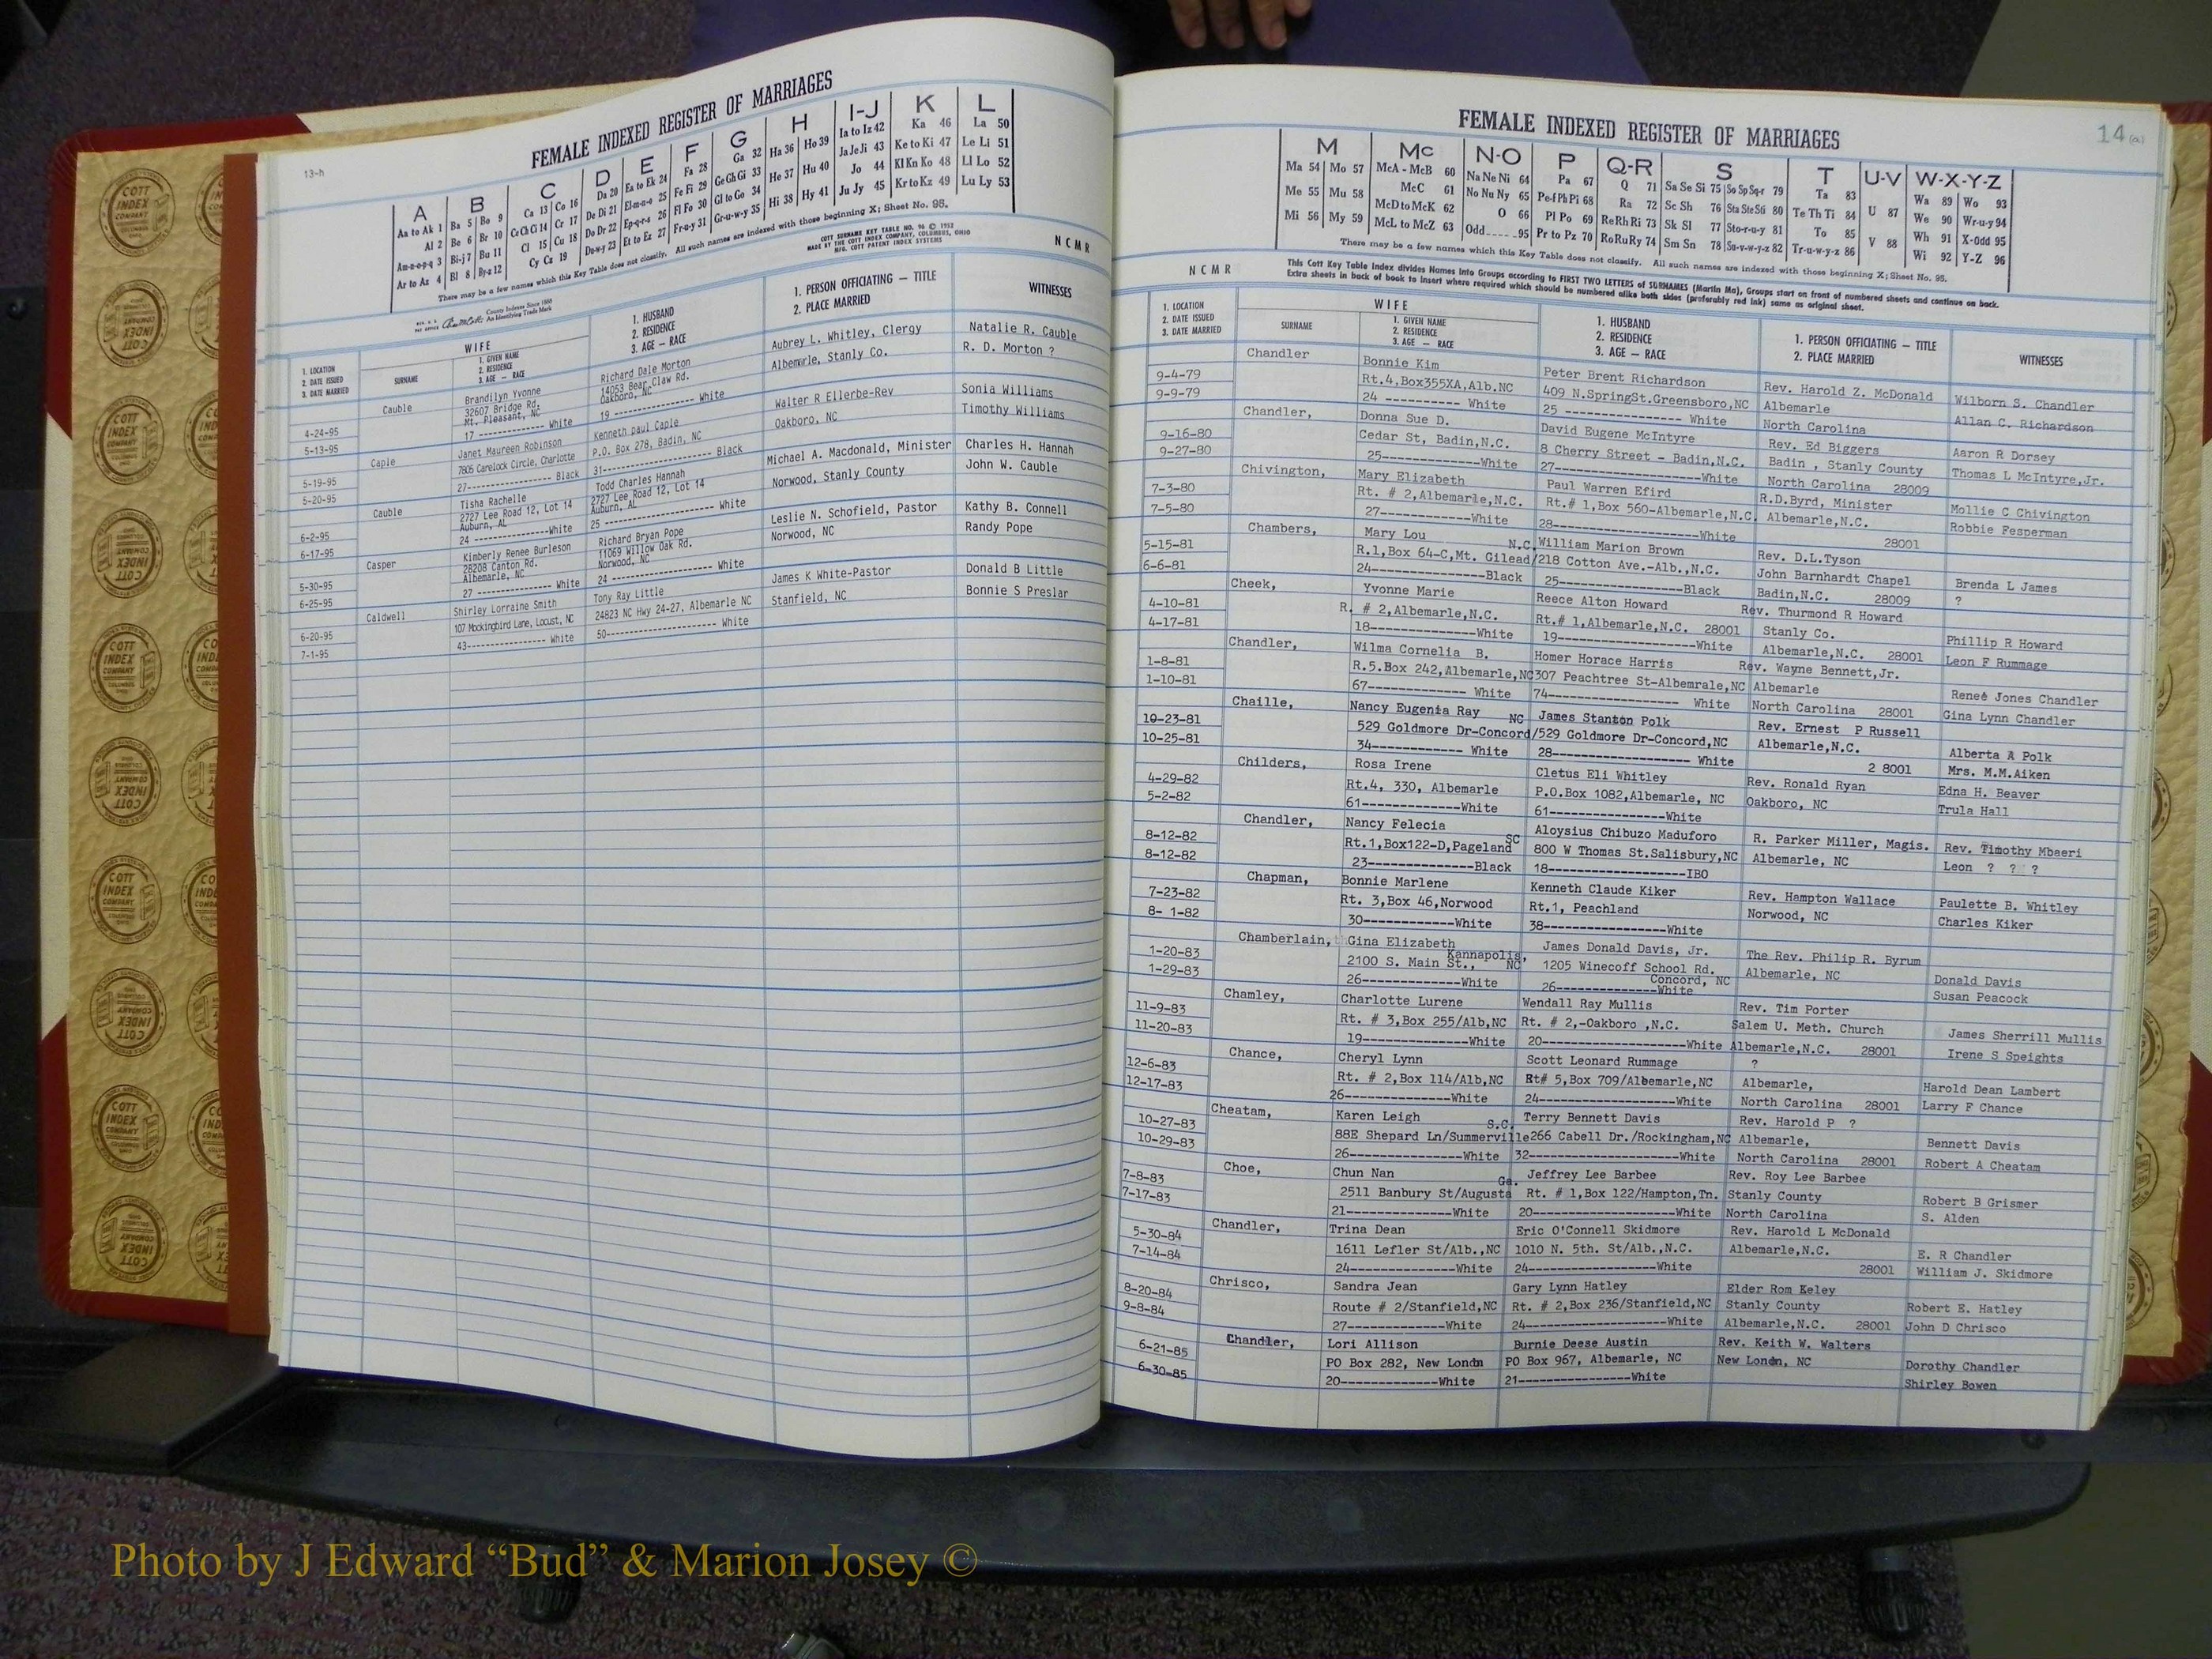 13-h
FEMALE INDEXED REGISTER OF MARRIAGES
A B C D E F G H I-J K L
Aa to Ak 1 Ba 5 Bo 9 Ca 13 Co 16 Da 20 Ea to Ek 24 Fa 28 Ga 32 Ha 36 Ho 39 Ia to Iz 42 Ka 46 La 50
Al 2 Be 6 Br 10 Ce Ch Ci 14 Cr 17 De Di 21 El-m-n-o 25 Fe Fi 29 Ge Gh Gi 33 He 37 Hu 40 Ja Je Ji 43 Ke to Ki 47 Le Li 51
Am-n-o-p-q 3 Bi-j 7 Bu 11 Cl 15 Cu 18 Do Dr 22 Ep-q-r-s 26 Fl Fo 30 Gl to Go 34 Hi 38 Hy 41 Jo 44 Kl Kn Ko 48 Ll Lo 52
Ar to Az 4 Bl 8 By-z 12 Cy Cz 19 Du-w-y 23 Et to Ez 27 Fr-u-y 31 Gr-u-w-y 35 Ju Jy 45 Kr to Kz 49 Lu Ly 53
There may be a few names which this Key Table does not classify. All such names are indexed with those beginning X; Sheet No. 95.
County Indexes Since 1888
An Identifying Trade Mark
COTT SURNAME KEY TABLE NO. 96 © 1952
MADE BY THE COTT INDEX COMPANY, COLUMBUS, OHIO
MFG. COTT PATENT INDEX SYSTEMS
NCMR
1. LOCATION
2. DATE ISSUED
3. DATE MARRIED
WIFE
SURNAME
1. GIVEN NAME
2. RESIDENCE
3. AGE — RACE
1. HUSBAND
2. RESIDENCE
3. AGE — RACE
1. PERSON OFFICIATING — TITLE
2. PLACE MARRIED
WITNESSES
Cauble Brandilyn Yvonne Richard Dale Morton Aubrey L. Whitley, Clergy Natalie R. Cauble
4-24-95 32607 Bridge Rd. Mt. Pleasant, NC 14053 Bear Claw Rd. Oakboro, NC Albemarle, Stanly Co. R. D. Morton ?
5-13-95 17 ------------- White 19 ------------- White
Caple Janet Maureen Robinson Kenneth paul Caple Walter R Ellerbe-Rev Sonia Williams
5-19-95 7805 Carelock Circle, Charlotte P.O. Box 278, Badin, NC Oakboro, NC Timothy Williams
5-20-95 27------------- Black 31------------- Black
Cauble Tisha Rachelle Todd Charles Hannah Michael A. Macdonald, Minister Charles H. Hannah
6-2-95 2727 Lee Road 12, Lot 14 Auburn, AL 2727 Lee Road 12, Lot 14 Auburn, AL Norwood, Stanly County John W. Cauble
6-17-95 24 -------------White 25 ------------- White
Casper Kimberly Renee Burleson Richard Bryan Pope Leslie N. Schofield, Pastor Kathy B. Connell
5-30-95 28208 Canton Rd. Albemarle, NC 11069 Willow Oak Rd. Norwood, NC Norwood, NC Randy Pope
6-25-95 27 ------------- White 24 ------------- White
Caldwell Shirley Lorraine Smith Tony Ray Little James K White-Pastor Donald B Little
6-20-95 107 Mockingbird Lane, Locust, NC 24823 NC Hwy 24-27, Albemarle NC Stanfield, NC Bonnie S Preslar
7-1-95 43------------- White 50------------- White
14 (a)
FEMALE INDEXED REGISTER OF MARRIAGES
M Mc N-O P Q-R S T U-V W-X-Y-Z
Ma 54 Mo 57 McA - McB 60 Na Ne Ni 64 Pa 67 Q 71 Sa Se Si 75 So Sp Sq-r 79 Ta 83 Wa 89 Wo 93
Me 55 Mu 58 McC 61 No Nu Ny 65 Pe-f Ph Pi 68 Ra 72 Sc Sh 76 Sta Ste Sti 80 Te Th Ti 84 U 87 We 90 Wr-u-y 94
Mi 56 My 59 McD to McK 62 O 66 Pl Po 69 Re Rh Ri 73 Sk Sl 77 Sto-r-u-y 81 To 85 V 88 Wh 91 X-Odd 95
McL to McZ 63 Odd.....95 Pr to Pz 70 Ro Ru Ry 74 Sm Sn 78 Su-v-w-y-z 82 Tr-u-w-y-z 86 Wi 92 Y-Z 96
There may be a few names which this Key Table does not classify. All such names are indexed with those beginning X; Sheet No. 95.
NCMR
This Cott Key Table Index divides Names into Groups according to FIRST TWO LETTERS of SURNAMES (Martin Ma), Groups start on front of numbered sheets and continue on back.
Extra sheets in back of book to insert where required which should be numbered alike both sides (preferably red ink) same as original sheet.
1. LOCATION
2. DATE ISSUED
3. DATE MARRIED
WIFE
SURNAME
1. GIVEN NAME
2. RESIDENCE
3. AGE — RACE
1. HUSBAND
2. RESIDENCE
3. AGE — RACE
1. PERSON OFFICIATING — TITLE
2. PLACE MARRIED
WITNESSES
Chandler Bonnie Kim Peter Brent Richardson Rev. Harold Z. McDonald Wilborn S. Chandler
9-4-79 Rt.4,Box355XA,Alb.NC 409 N.SpringSt.Greensboro,NC Albemarle Allan C. Richardson
9-9-79 24 ---------- White 25 --------------- White North Carolina
Chandler, Donna Sue D. David Eugene McIntyre Rev. Ed Biggers Aaron R Dorsey
9-16-80 Cedar St, Badin,N.C. 8 Cherry Street - Badin,N.C. Badin , Stanly County Thomas L McIntyre,Jr.
9-27-80 25-------------White 27-----------------White North Carolina 28009
Chivington, Mary Elizabeth Paul Warren Efird R.D.Byrd, Minister Mollie C Chivington
7-3-80 Rt. # 2,Albemarle,N.C. Rt.# 1,Box 560-Albemarle,N.C. Albemarle,N.C. Robbie Fesperman
7-5-80 27------------White 28------------------White 28001
Chambers, Mary Lou William Marion Brown Rev. D.L.Tyson Brenda L James
5-15-81 R.1,Box 64-C,Mt. Gilead/ N.C. 218 Cotton Ave.-Alb.,N.C. John Barnhardt Chapel ?
6-6-81 24---------------Black 25----------------Black Badin,N.C. 28009
Cheek, Yvonne Marie Reece Alton Howard Rev. Thurmond R Howard Phillip R Howard
4-10-81 R. # 2,Albemarle,N.C. Rt.# 1,Albemarle,N.C. 28001 Stanly Co. Leon F Rummage
4-17-81 18---------------White 19-----------------White Albemarle,N.C. 28001
Chandler, Wilma Cornelia B. Homer Horace Harris Rev. Wayne Bennett,Jr. Reneé Jones Chandler
1-8-81 R.5.Box 242,Albemarle,NC 307 Peachtree St-Albemrale,NC Albemarle Gina Lynn Chandler
1-10-81 67------------- White 74----------------- White North Carolina 28001
Chaille, Nancy Eugenia Ray James Stanton Polk Rev. Ernest P Russell Alberta A Polk
10-23-81 529 Goldmore Dr-Concord/ NC 529 Goldmore Dr-Concord,NC Albemarle,N.C. Mrs. M.M.Aiken
10-25-81 34------------ White 28------------------ White 2 8001
Childers, Rosa Irene Cletus Eli Whitley Rev. Ronald Ryan Edna H. Beaver
4-29-82 Rt.4, 330, Albemarle P.O.Box 1082,Albemarle, NC Oakboro, NC Trula Hall
5-2-82 61-------------White 61---------------White
Chandler, Nancy Felecia Aloysius Chibuzo Maduforo R. Parker Miller, Magis. Rev. Timothy Mbaeri
8-12-82 Rt.1,Box122-D,Pageland SC 800 W Thomas St.Salisbury,NC Albemarle, NC Leon ? ? ?
8-12-82 23--------------Black 18------------------IBO
Chapman, Bonnie Marlene Kenneth Claude Kiker Rev. Hampton Wallace Paulette B. Whitley
7-23-82 Rt. 3,Box 46,Norwood Rt.1, Peachland Norwood, NC Charles Kiker
8- 1-82 30------------White 38----------------White
Chamberlain, Gina Elizabeth James Donald Davis, Jr. The Rev. Philip R. Byrum Donald Davis
1-20-83 2100 S. Main St., Kannapolis, NC 1205 Winecoff School Rd. Concord, NC Albemarle, NC Susan Peacock
1-29-83 26-------------White 26---------------White
Chamley, Charlotte Lurene Wendall Ray Mullis Rev. Tim Porter James Sherrill Mullis
11-9-83 Rt. # 3,Box 255/Alb,NC Rt. # 2,-Oakboro ,N.C. Salem U. Meth. Church Irene S Speights
11-20-83 19--------------White 20-------------------White Albemarle,N.C. 28001
Chance, Cheryl Lynn Scott Leonard Rummage ? Harold Dean Lambert
12-6-83 Rt. # 2,Box 114/Alb,NC Rt# 5,Box 709/Albemarle,NC Albemarle, Larry F Chance
12-17-83 26--------------White 24-------------------White North Carolina 28001
Cheatam, Karen Leigh Terry Bennett Davis Rev. Harold P ? Bennett Davis
10-27-83 88E Shepard Ln/Summerville S.C. 266 Cabell Dr./Rockingham,NC Albemarle, Robert A Cheatam
10-29-83 26---------------White 32-------------------White North Carolina 28001
Choe, Chun Nan Jeffrey Lee Barbee Rev. Roy Lee Barbee Robert B Grismer
7-8-83 2511 Banbury St/Augusta Ga. Rt. # 1,Box 122/Hampton,Tn. Stanly County S. Alden
7-17-83 21---------------White 20-------------------White North Carolina
Chandler, Trina Dean Eric O'Connell Skidmore Rev. Harold L McDonald E. R Chandler
5-30-84 1611 Lefler St/Alb.,NC 1010 N. 5th. St/Alb.,N.C. Albemarle,N.C. William J. Skidmore
7-14-84 24---------------White 24-----------------White 28001
Chrisco, Sandra Jean Gary Lynn Hatley Elder Rom Keley Robert E. Hatley
8-20-84 Route # 2/Stanfield,NC Rt. # 2,Box 236/Stanfield,NC Stanly County John D Chrisco
9-8-84 27--------------White 24------------------White Albemarle,N.C. 28001
Chandler, Lori Allison Burnie Deese Austin Rev. Keith W. Walters Dorothy Chandler
6-21-85 PO Box 282, New London PO Box 967, Albemarle, NC New London, NC Shirley Bowen
6-30-85 20--------------White 21----------------White
Photo by J Edward “Bud” & Marion Josey ©